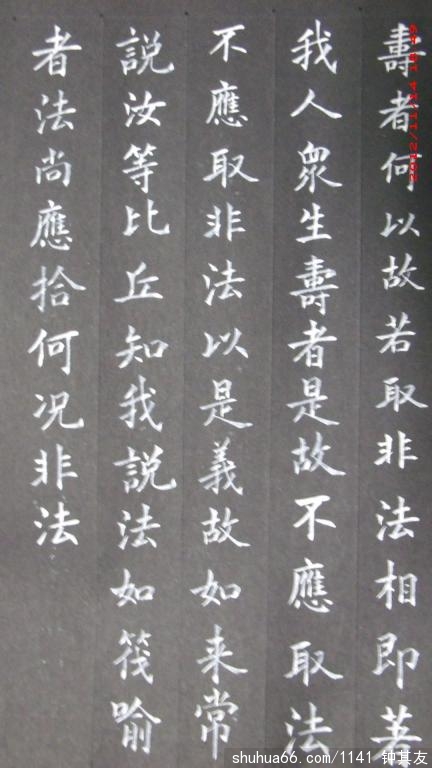 壽者何以故若取非法相即著
我人衆生壽者是故不應取法
不應取非法以是義故如来常
說汝等比丘知我說法如筏喻
者法尚應拾何况非法
shuhua66.com/1141 钟其友